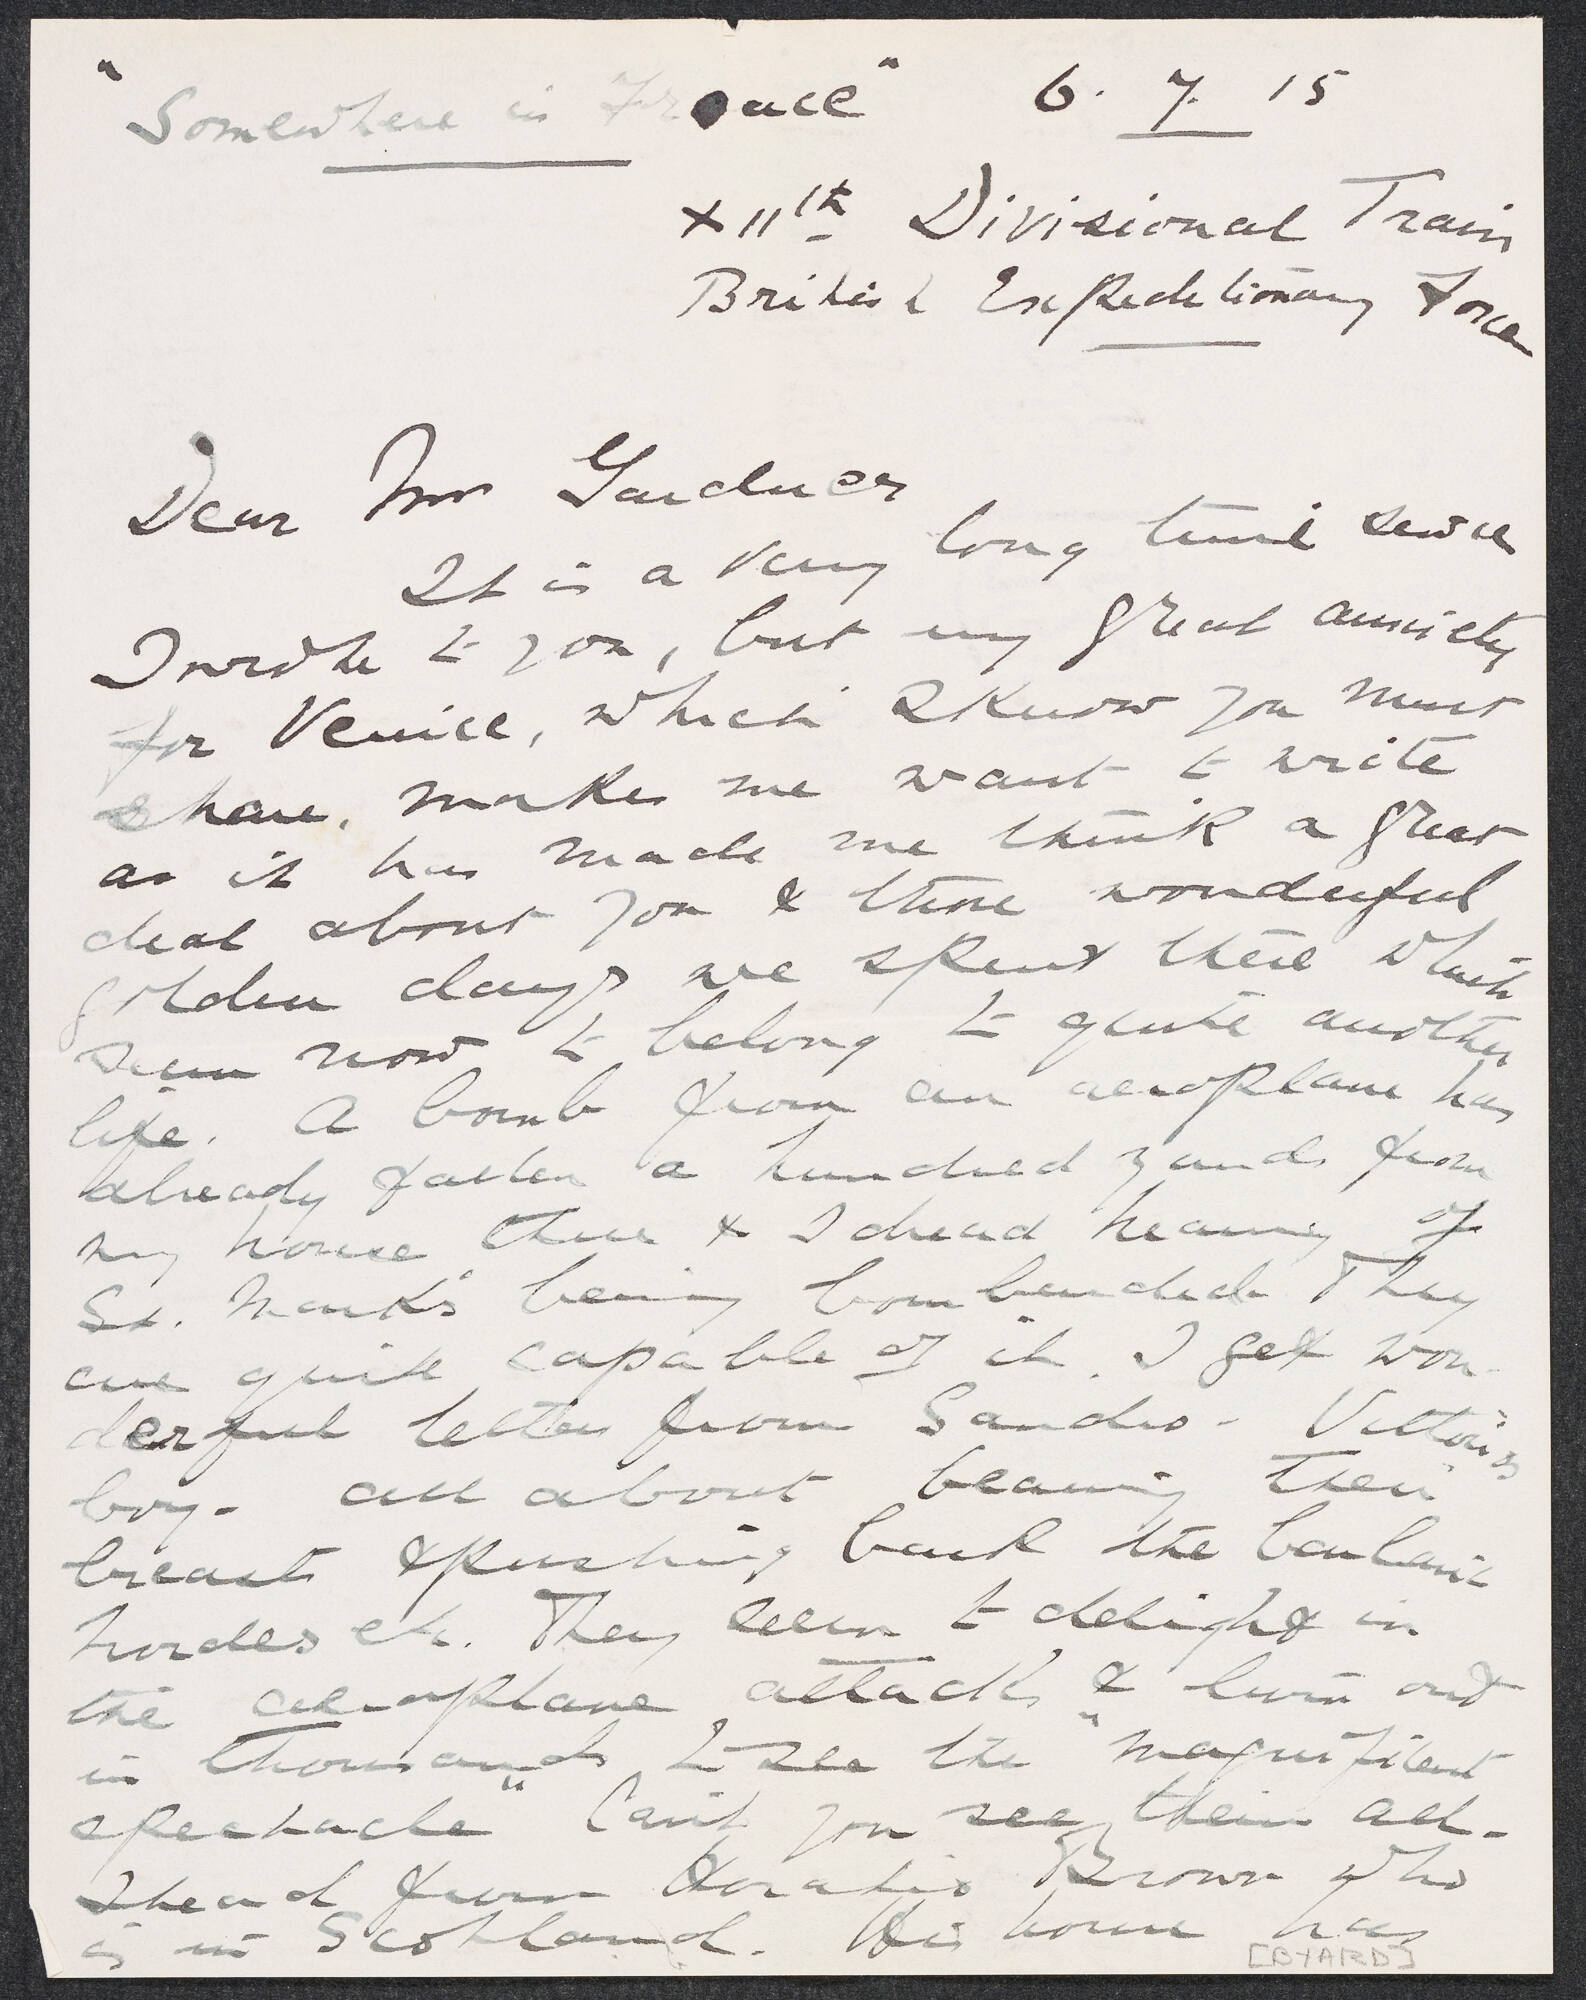 "Somewhere in France" 6. 7. 15
XIIth Divisional Train
British Expeditionary Force
Dear Mrs Gardner
It is a very long time since
I wrote to you, but my great anxiety
for Venice, which I know you must
share, makes me want to write
as it has made me think a great
deal about you & those wonderful
golden days we spent there which
seem now to belong to quite another
life. A bomb from an aeroplane has
already fallen a hundred yards from
my house there & I dread hearing of
St. Mark's being bombarded. They
are quite capable of it. I get won-
derful letters from Sandro - Vittorio's
boy - all about bearing their
breasts & pushing back the barbaric
hordes etc. They seem to delight in
the aeroplane attacks & turn out
in thousands to see the "magnificent
spectacle" Can't you see them all -
I heard from Horatio Brown who
is in Scotland. His house has
[BYARD]